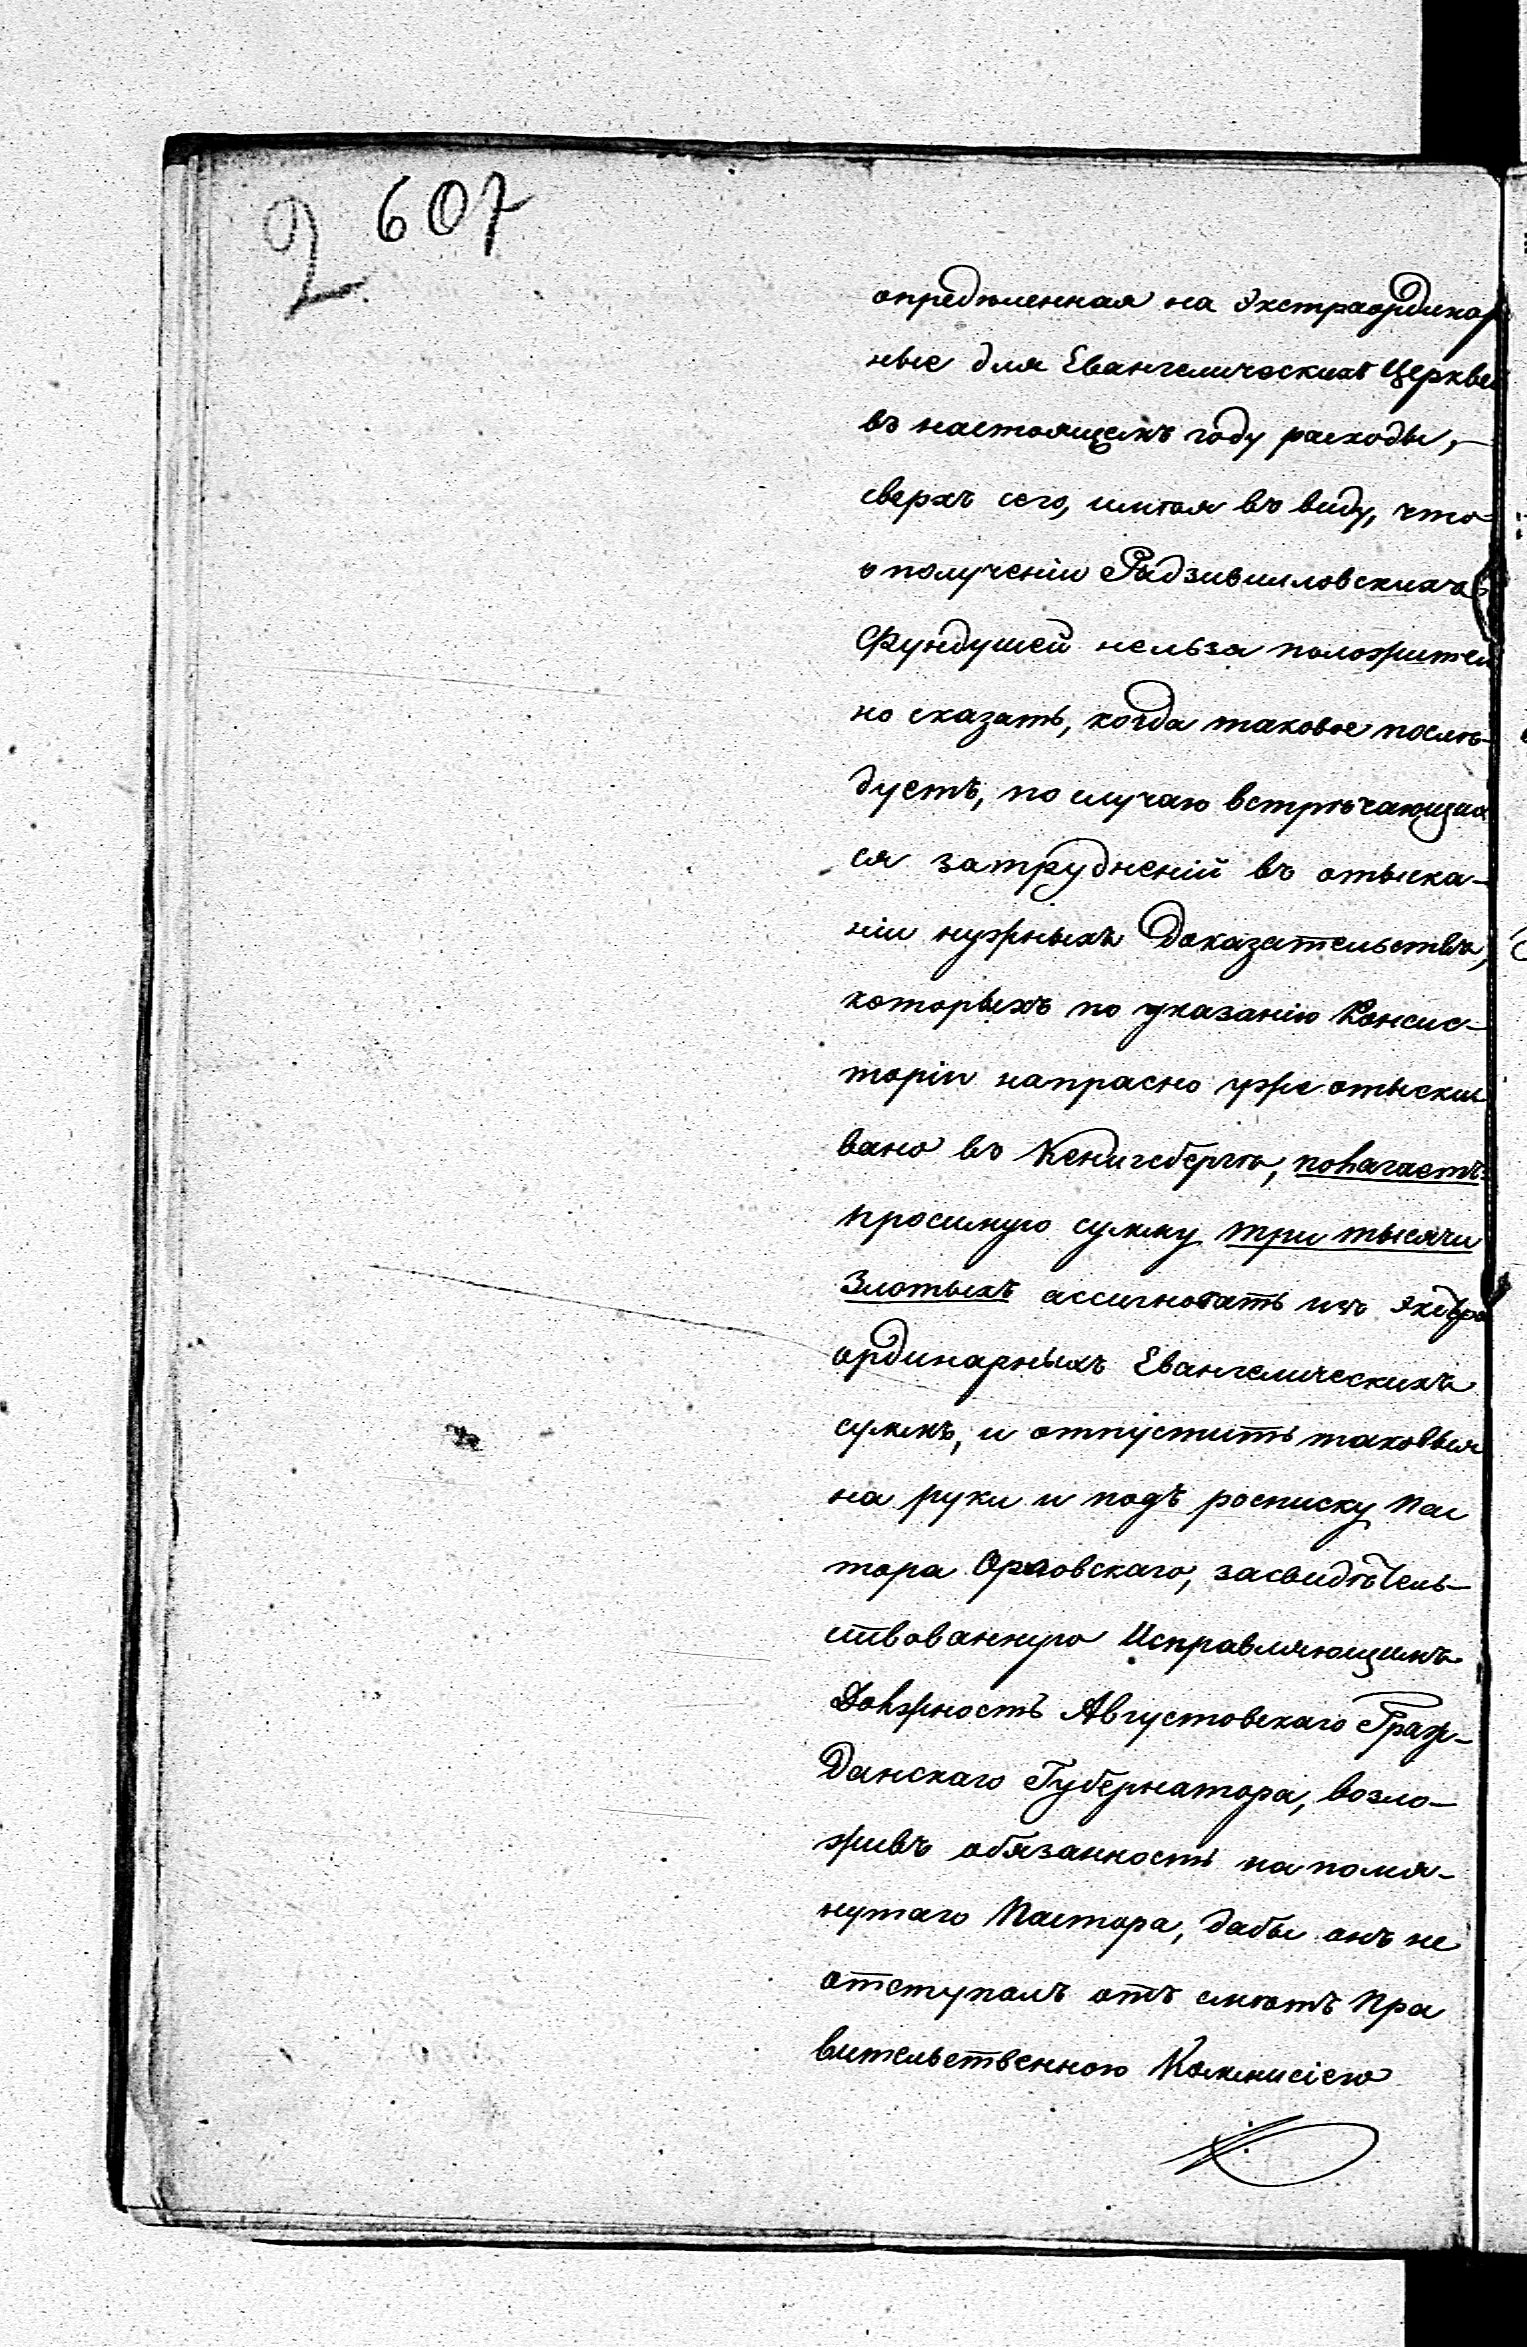 2 607
опредѣленная на Экстраординар
ные для Евангелическихъ Церквей
въ настоящемъ году расходы,—
сверхъ сего, имѣя въ виду, что
о полученіи Радзивилловскихъ
Фундушей нельзя положитель
но сказать, когда таковое послѣ-
дуетъ, по случаю встрѣчающих
ся затрудненій въ отыска-
ніи нужныхъ Доказательствъ,
которыхъ по указанію Консис-
торіи напрасно уже отыски
вано въ Кенигсбергѣ, полагаетъ:
просимую сумму три тысячи
Злотыхъ ассигновать изъ Экстра
ординарныхъ Евангелическихъ
суммъ, и отпустить таковыя
на руки и подъ росписку Пас
тора Орловскаго, засвидѣтель-
ствованную Исправляющимъ
Должность Августовскаго Граж-
Данскаго Губернатора, возло-
живъ обязанность на помя-
нутаго Пастора, дабы онъ не
отступалъ отъ смѣтъ Пра
вительственною Коммисіею